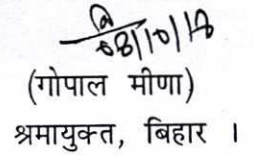 08/10/18
(गोपाल मीणा)
श्रमायुक्त, बिहार ।